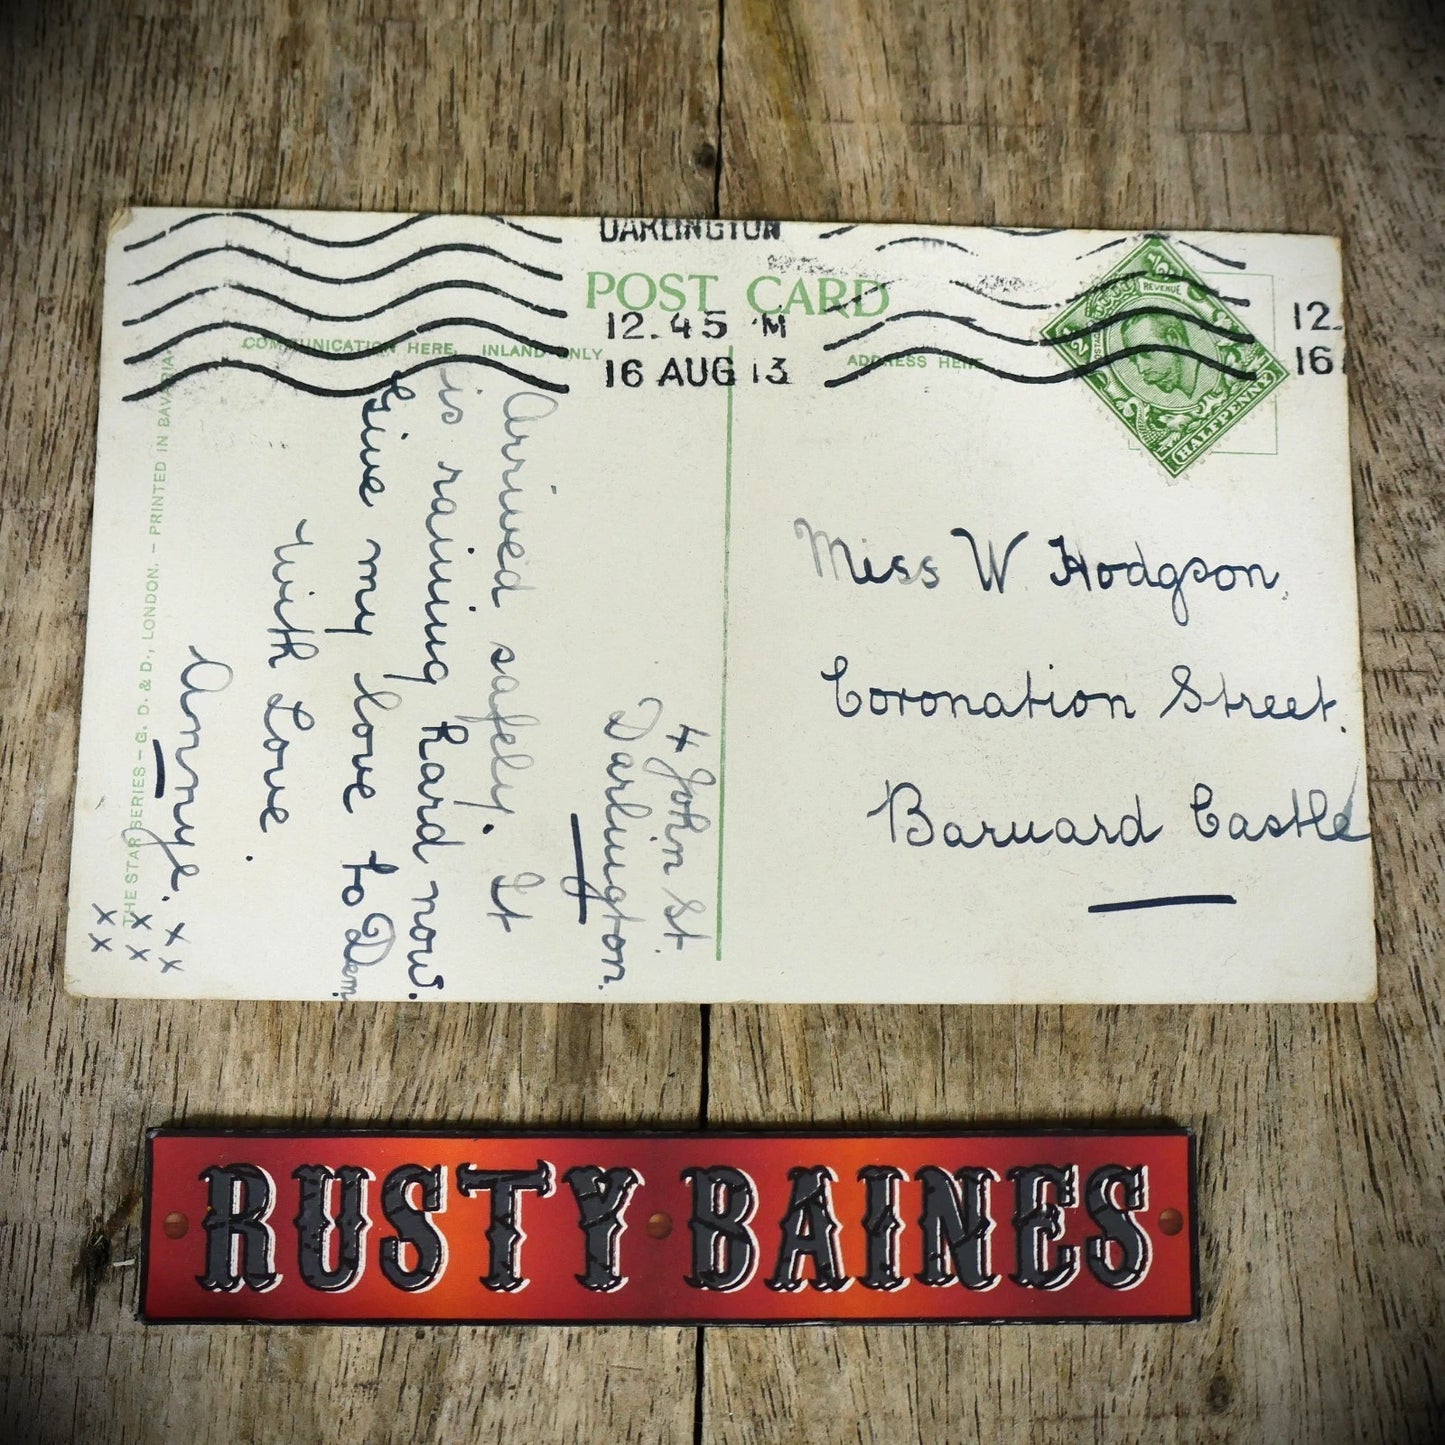 DARLINGTON
POST CARD
12.45 M
16 AUG 13
12.
16
COMMUNICATION HERE, INLAND ONLY
ADDRESS HERE
REVENUE
POSTAGE
1/2
1/2
HALFPENNY
THE STAR SERIES – G. D. & D., LONDON. – PRINTED IN BAVARIA
4 John St.
Darlington.
Arrived safely. It
is raining hard now.
Give my love to Dem.
With Love
Annye. x x
x x
x x
Miss W Hodgson,
Coronation Street.
Barnard Castle
RUSTY BAINES